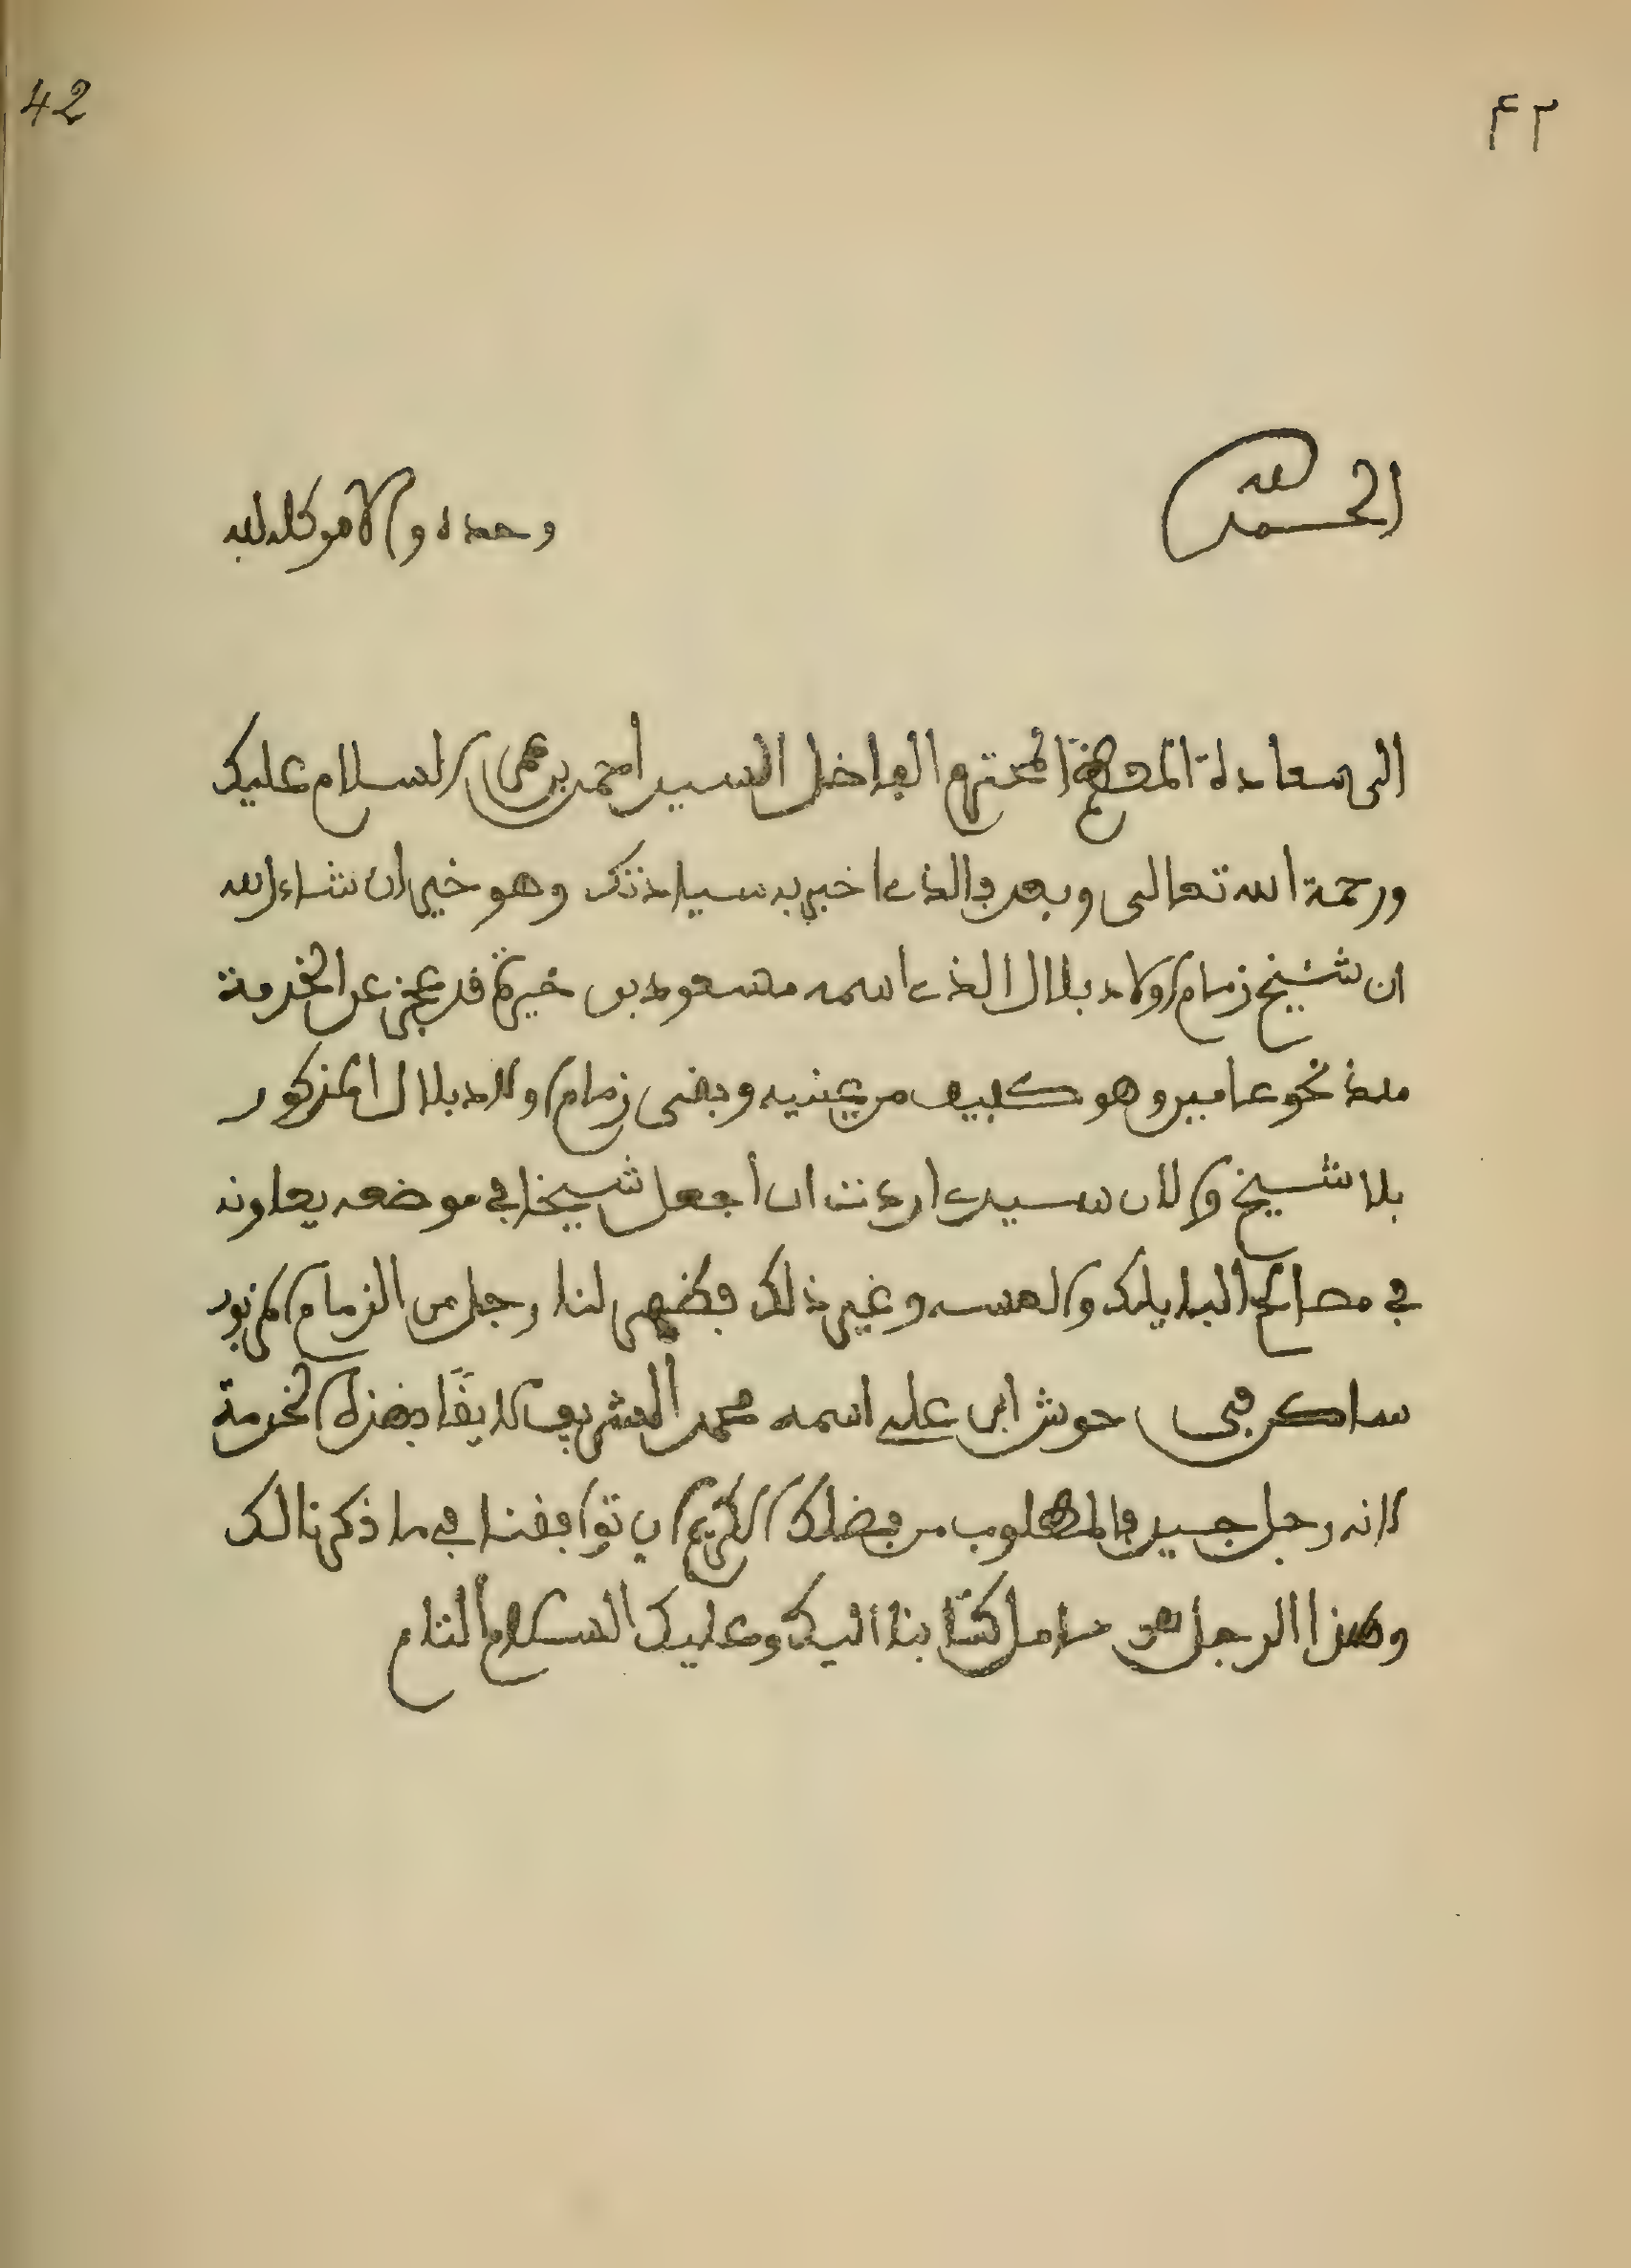 42
٤٢
الحمد لله
وحده والامر كله لله
الى سعادة المعظم المحترم الفاضل السيد احمد بن علي السلام عليك
ورحمة الله تعالى وبعد فالذي اخبر به سيادتك وهو خير ان شاء الله
ان شيخ زمام اولاد بلال الذي اسمه مسعود بن خيرة قد عجز عن الخدمة
منذ نحو عامين وهو كفيف من عينيه وبقى زمام اولاد بلال المذكور
بلا شيخ والان سيدي اردت ان اجعل شيخا في موضعه يعاونه
في مصالح البايلك والعسه وغير ذلك فظهر لنا رجل من الزمام المزبور
ساكن في حوش ابن علي اسمه محمد الشريف لايقا بهذه الخدمة
لانه رجل جيد فالمطلوب من فضلك الكريم ان توافقنا في ما ذكرنا لك
وهذا الرجل هو حامل كتابنا اليك وعليك السلام التام